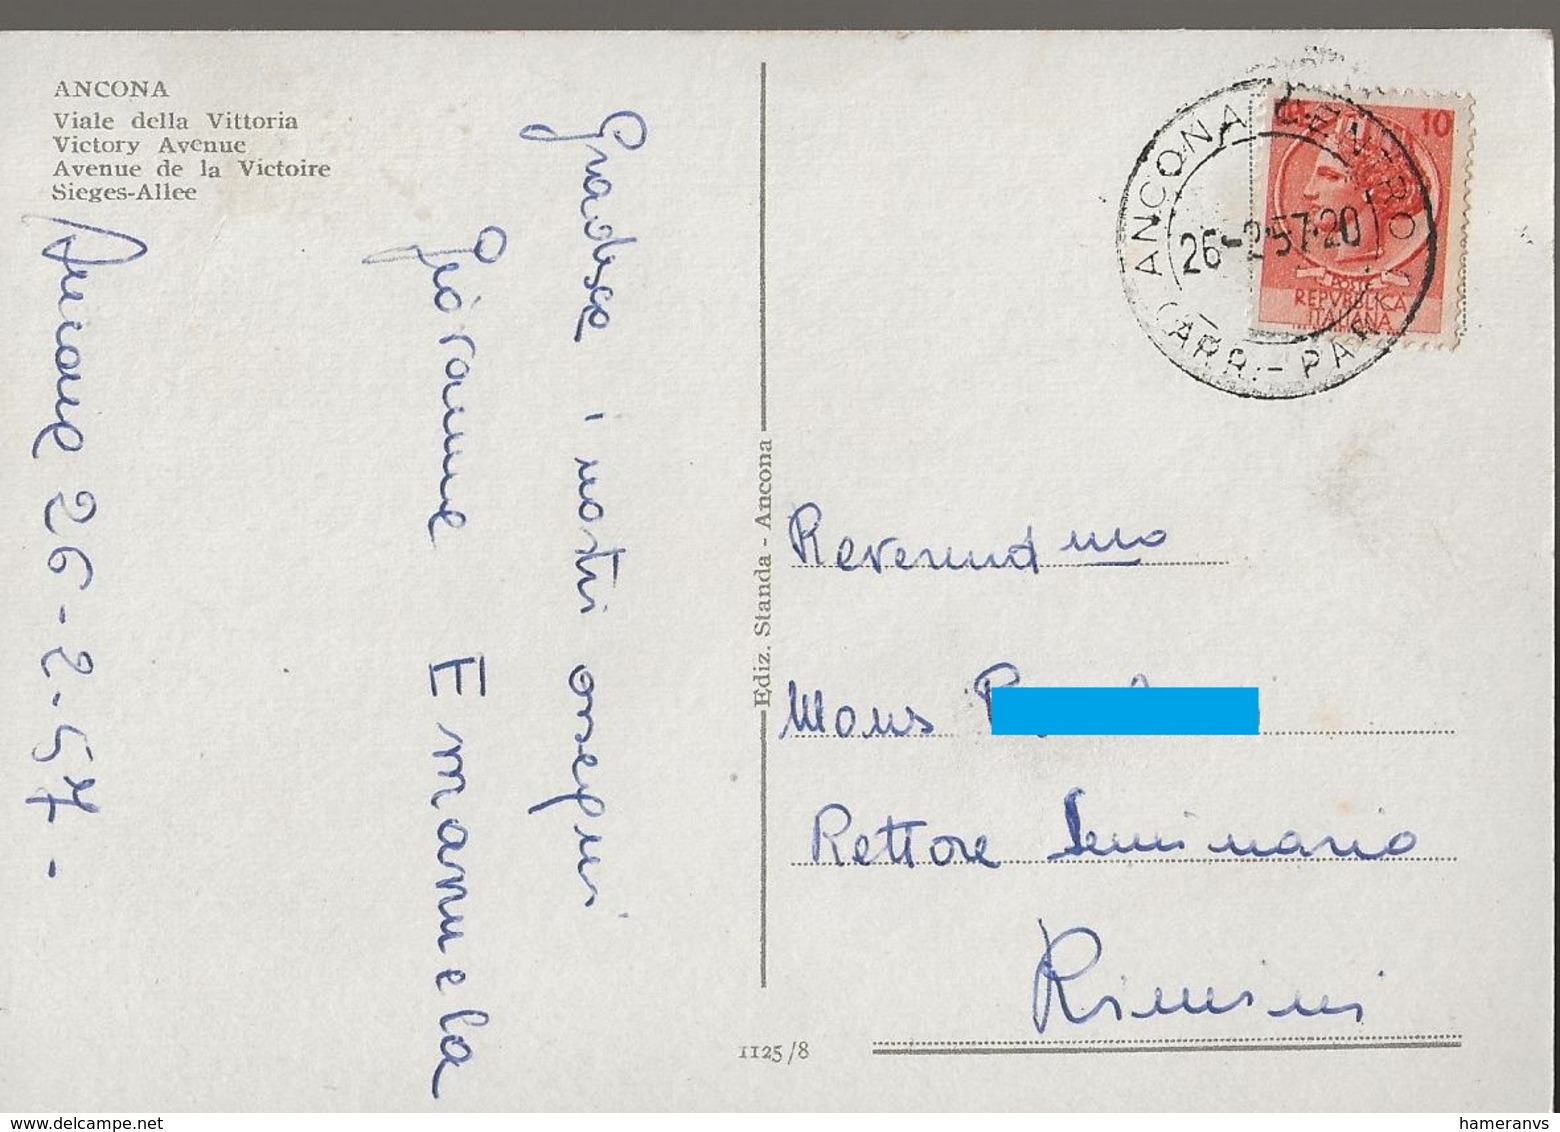 ANCONA
Viale della Vittoria
Victory Avenue
Avenue de la Victoire
Sieges-Allee
Ancona 26-2-57-
Gradisca i nostri ossequi
Giovanna Emanuela
Ediz. Standa - Ancona
1125/8
ANCONA CENTRO
26-2-57·20
(ARR.-PAR
10
POSTE
REPVBBLICA
ITALIANA
Reverendmo
Mons
Rettore Seminario
Rimini
hameranvs